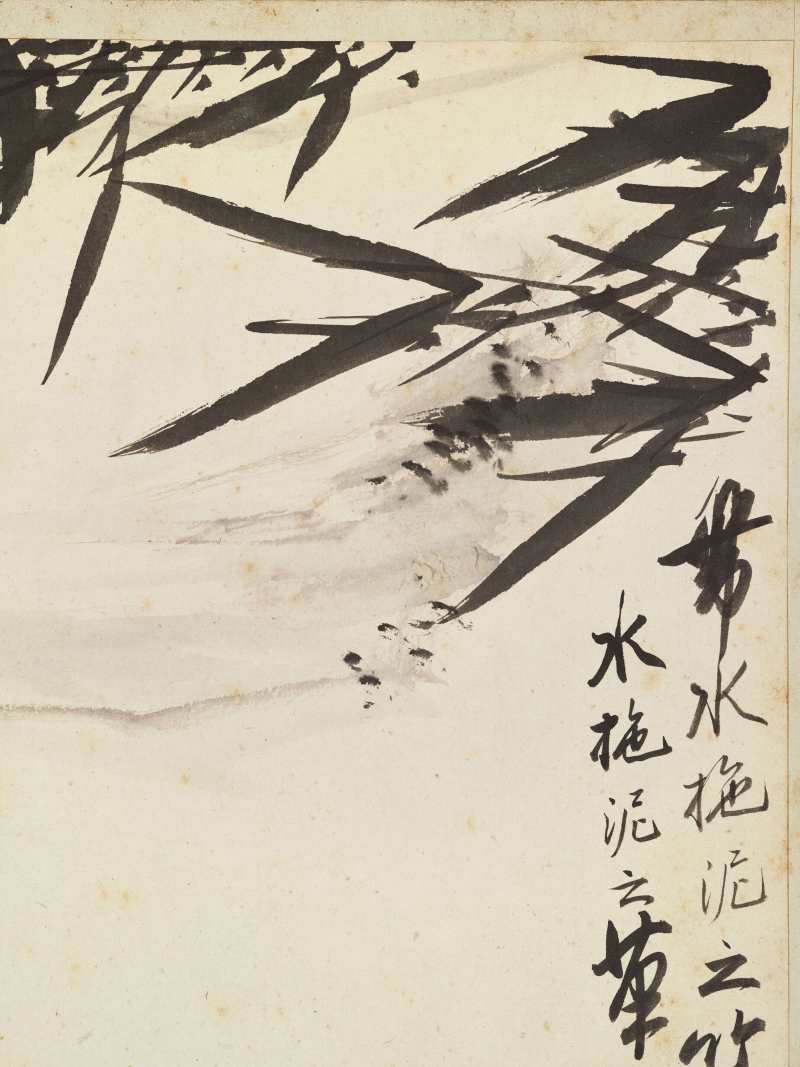 帶水拖泥之竹
水拖泥之